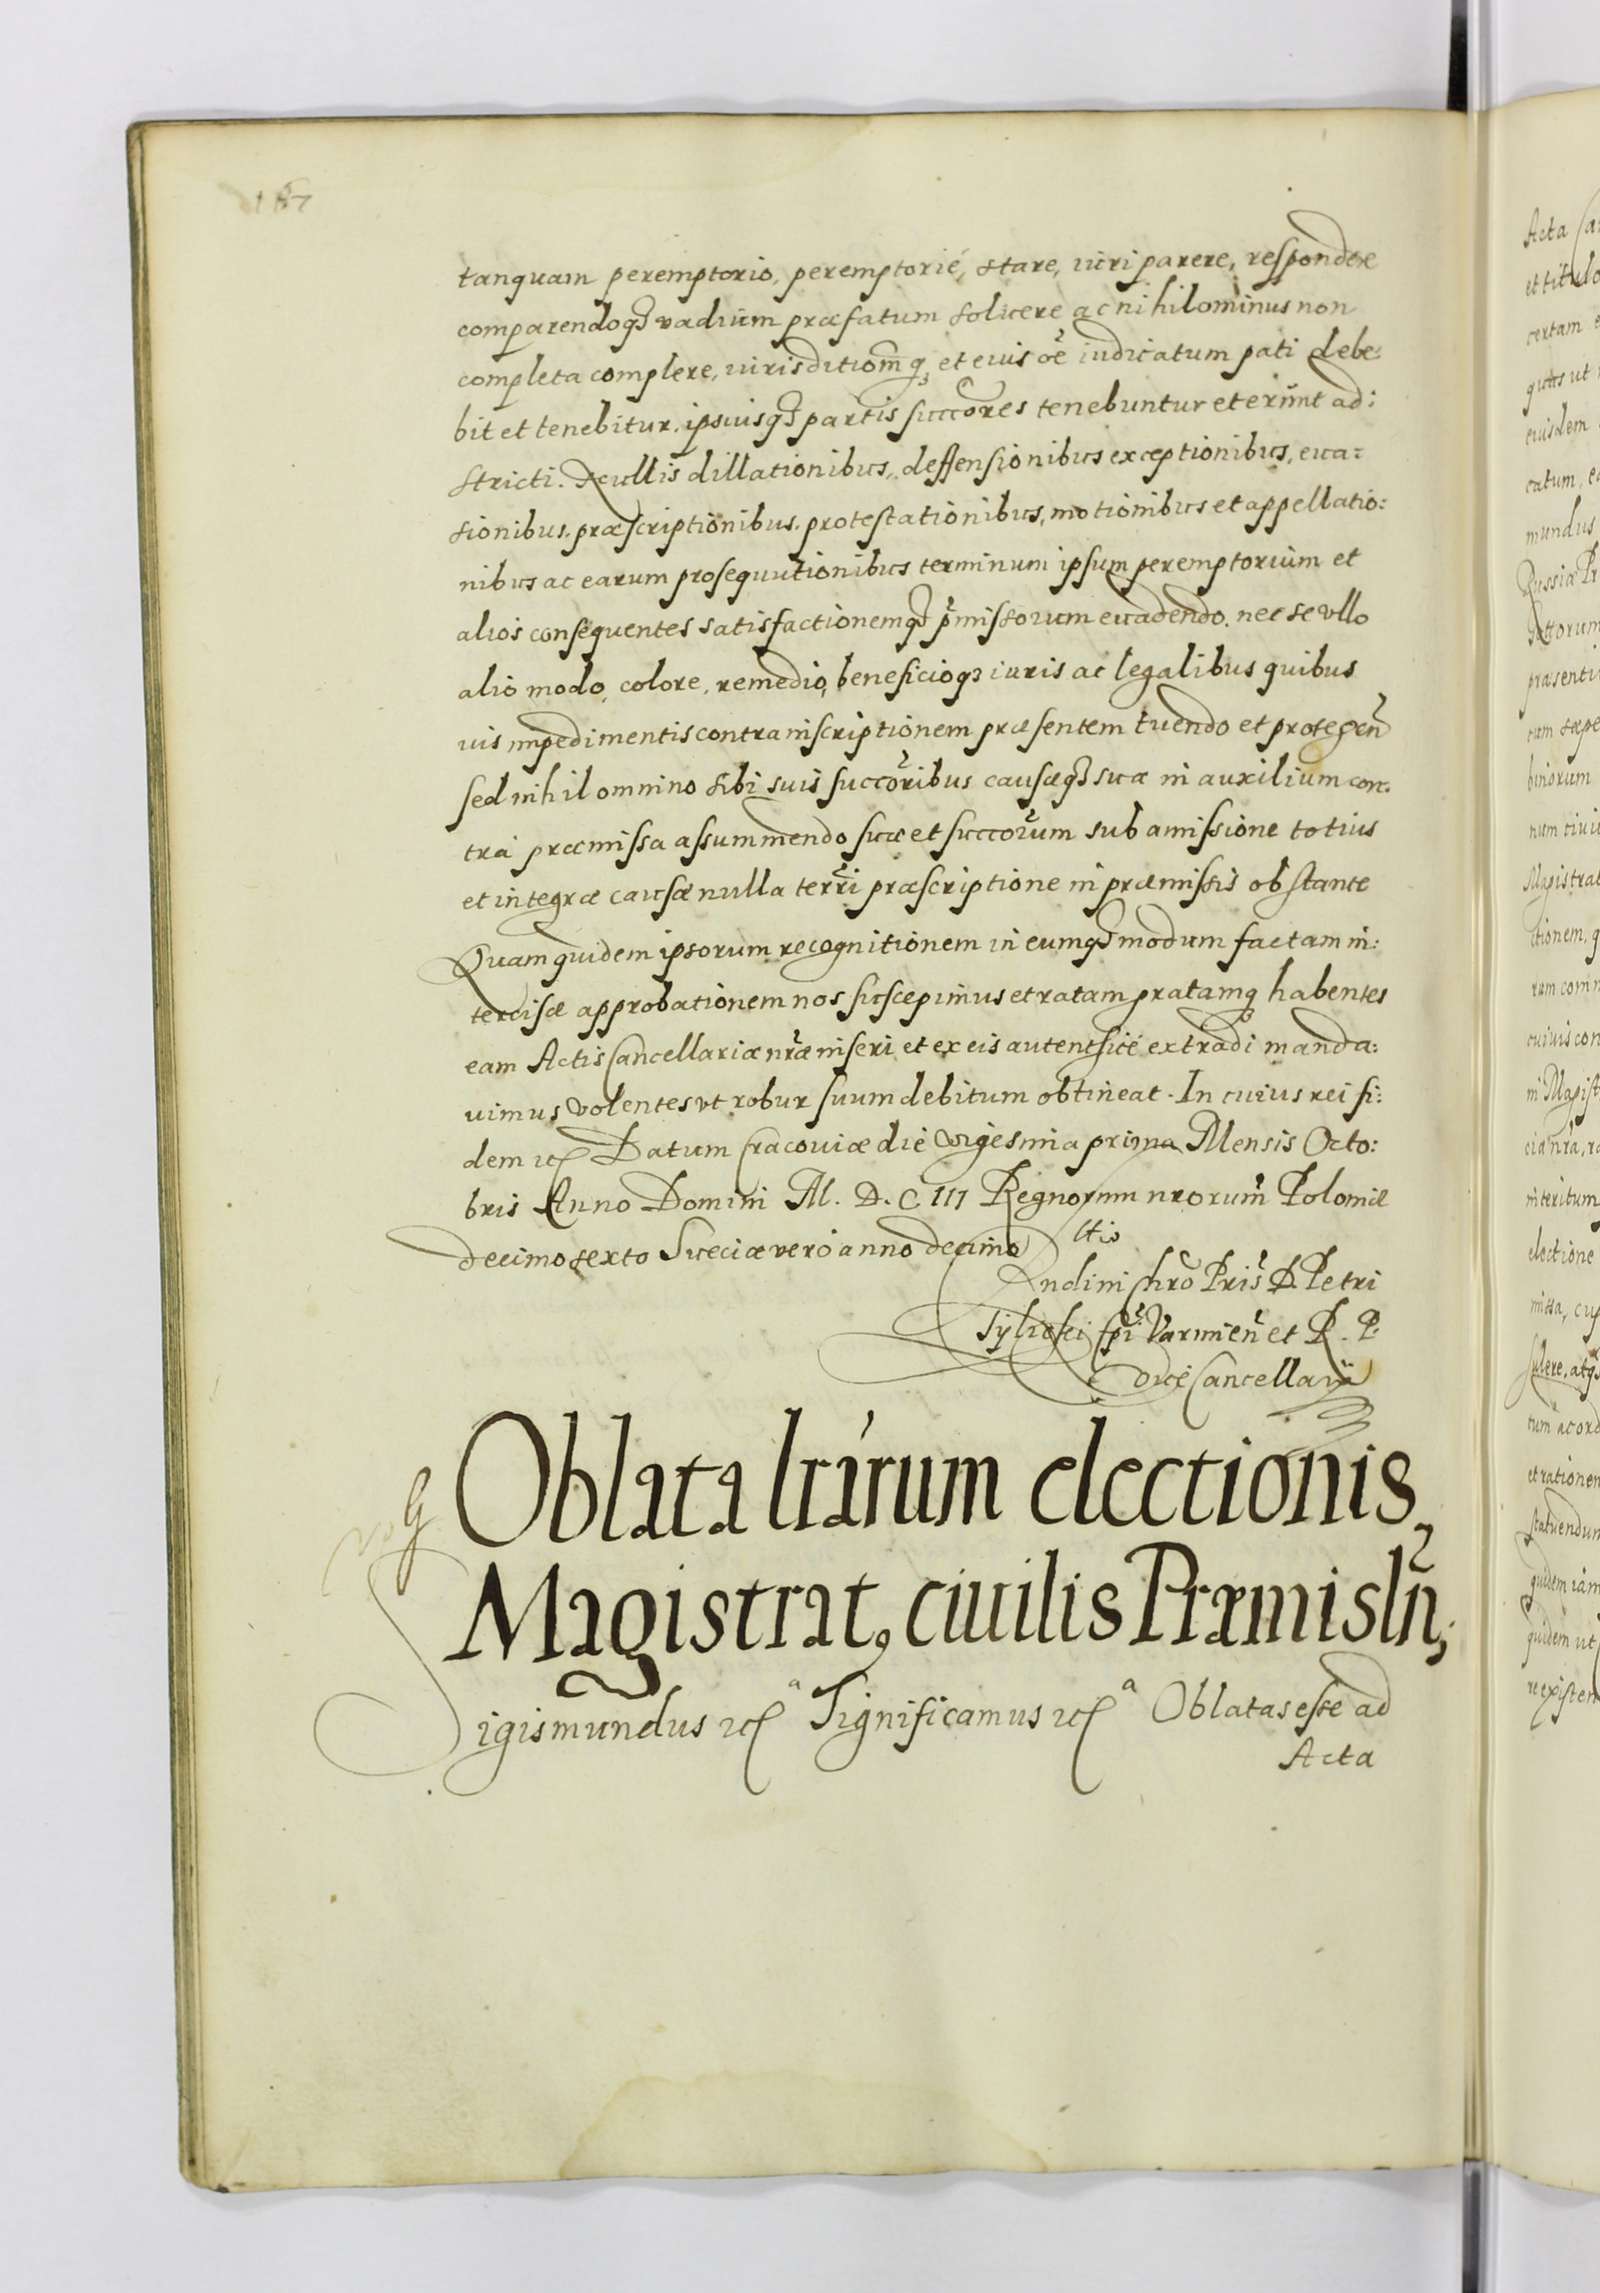 187
tanquam peremptorio, peremptorie, stare, iuri parere, respondere
comparendoq₃ vadium præfatum soluere ac nihilominus non
completa complere, iurisditiom̃q₃ et eius oẽ iudicatum pati debe:
bit et tenebitur, ipsiusq₃ partis succores tenebuntur et erunt ad:
stricti. Nullis dillationibus, deffensionibus exceptionibus, eua:
sionibus, præscriptionibus, protestationibus, motionibus et appellatio:
nibus ac earum prosequutionibus terminum ipsum peremptorium et
alios consequentes satisfactionemq₃ p̃missorum euadendo, nec se vllo
alio modo, colore, remedio, beneficioq₃ iuris ac legalibus quibus
uis impedimentis contra inscriptionem præsentem tuendo et protegeñ
sed nihil omnino sibi suis succoribus causæq₃ suæ in auxilium con:
tra præmissa assummendo suæ et succorum sub amissione totius
et integræ causæ nulla terri præscriptione in præmissis obstante
Quam quidem ipsorum recognitionem in eumq₃ modum factam in:
tercisæ approbationem nos suscepimus et ratam gratamq₃ habentes
eam Actis Cancellariæ nr̃æ inseri, et ex eis autentice extradi manda:
uimus volentes vt robur suum debitum obtineat. In cuius rei fi:
dem etc Datum Cracouiæ die vigesima prima Mensis Octo:
bris Anno Domini M. D. C III Regnorum nrorum̃ Poloniæ
decimosexto Sueciæ vero anno decimo
Rndi in Chro Pris D. Petri
Tylicki Epi Varmieñ et R. P.
Vice Cancellarii
Oblata lrarum electionis
Magistrat₉ ciuilis Præmisln̄,
Sigismundus etc ͣ Significamus etc ͣ Oblatas esse ad
Acta